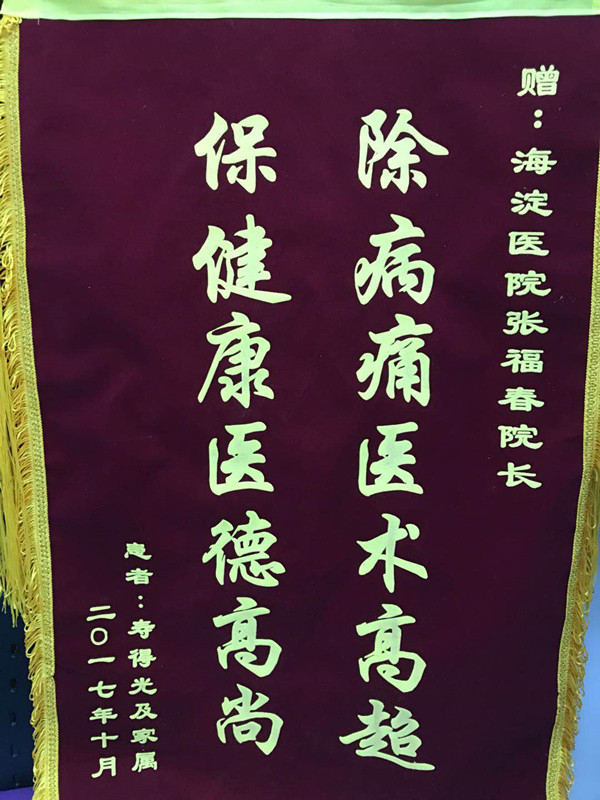 赠：海淀医院张福春院长
除病痛医术高超
保健康医德高尚
患者：寿得光及家属
二〇一七年十月